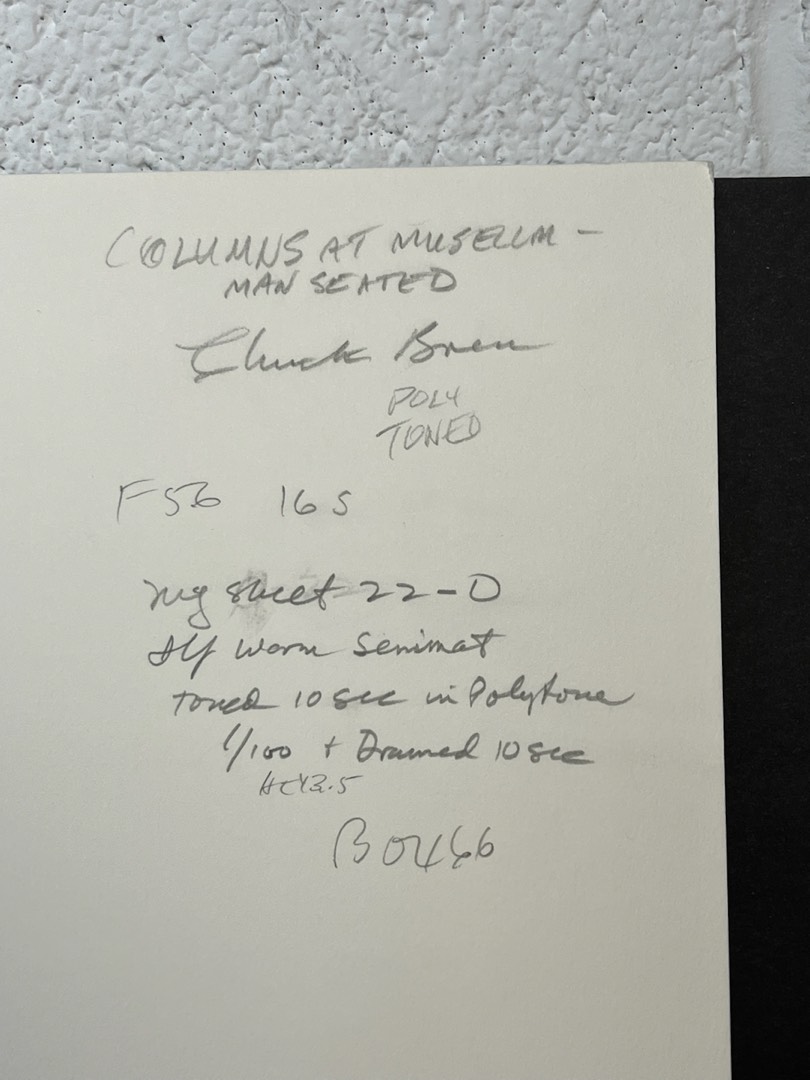 COLUMNS AT MUSEUM -
MAN SEATED
Chuck
POLY
TONED
F56 16 S
neg sheet 22-D
Ilf Warm Semimat
toned 10 sec in Polytone
1/100 + Drained 10 sec
B0466